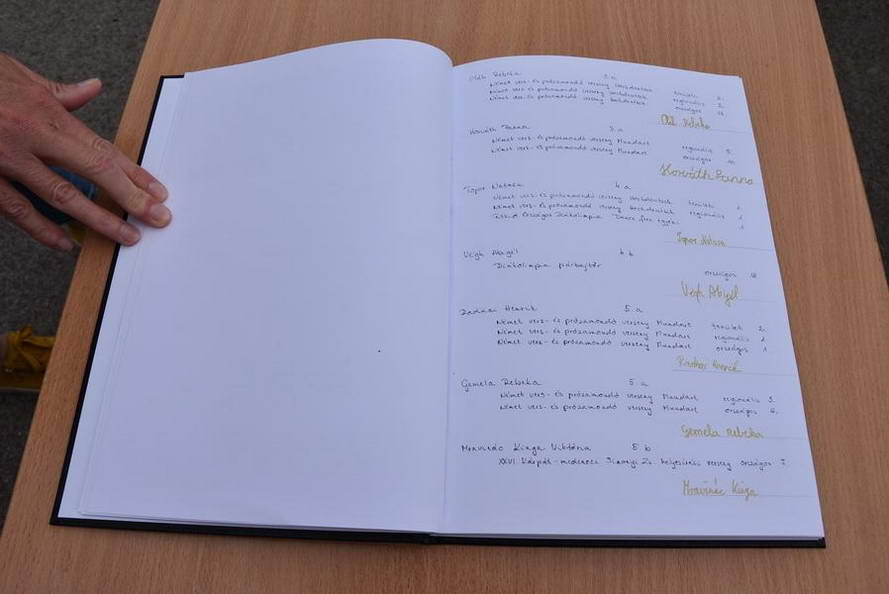 Oláh Rebeka 3.a
Német vers- és prózamondó verseny területi 2.
Német vers- és prózamondó verseny regionális 2.
Német vers- és prózamondó verseny országos
Oláh Rebeka
Horváth Panna 3.a
Német vers- és prózamondó verseny Mundart regionális
Német vers- és prózamondó verseny Mundart országos
Horváth Panna
Topor Natasa 4.a
Német vers- és prózamondó verseny területi 1.
Német vers- és prózamondó verseny regionális 1
Országos Diákolimpia 1
Topor Natasa
Végh Abigél 4.b
Diákolimpia párbajtőr országos
Végh Abigél
Henrik 5.a
Német vers- és prózamondó verseny Mundart területi 2.
Német vers- és prózamondó verseny Mundart regionális 1.
Német vers- és prózamondó verseny Mundart országos 1
Henrik
Gemela Rebeka 5.a
Német vers- és prózamondó verseny Mundart regionális 3.
Német vers- és prózamondó verseny Mundart országos
Gemela Rebeka
Kinga Viktória 5 b
XXVI Kárpát-medencei Simonyi Zs. helyesírási verseny országos 7.
Mravinác Kinga